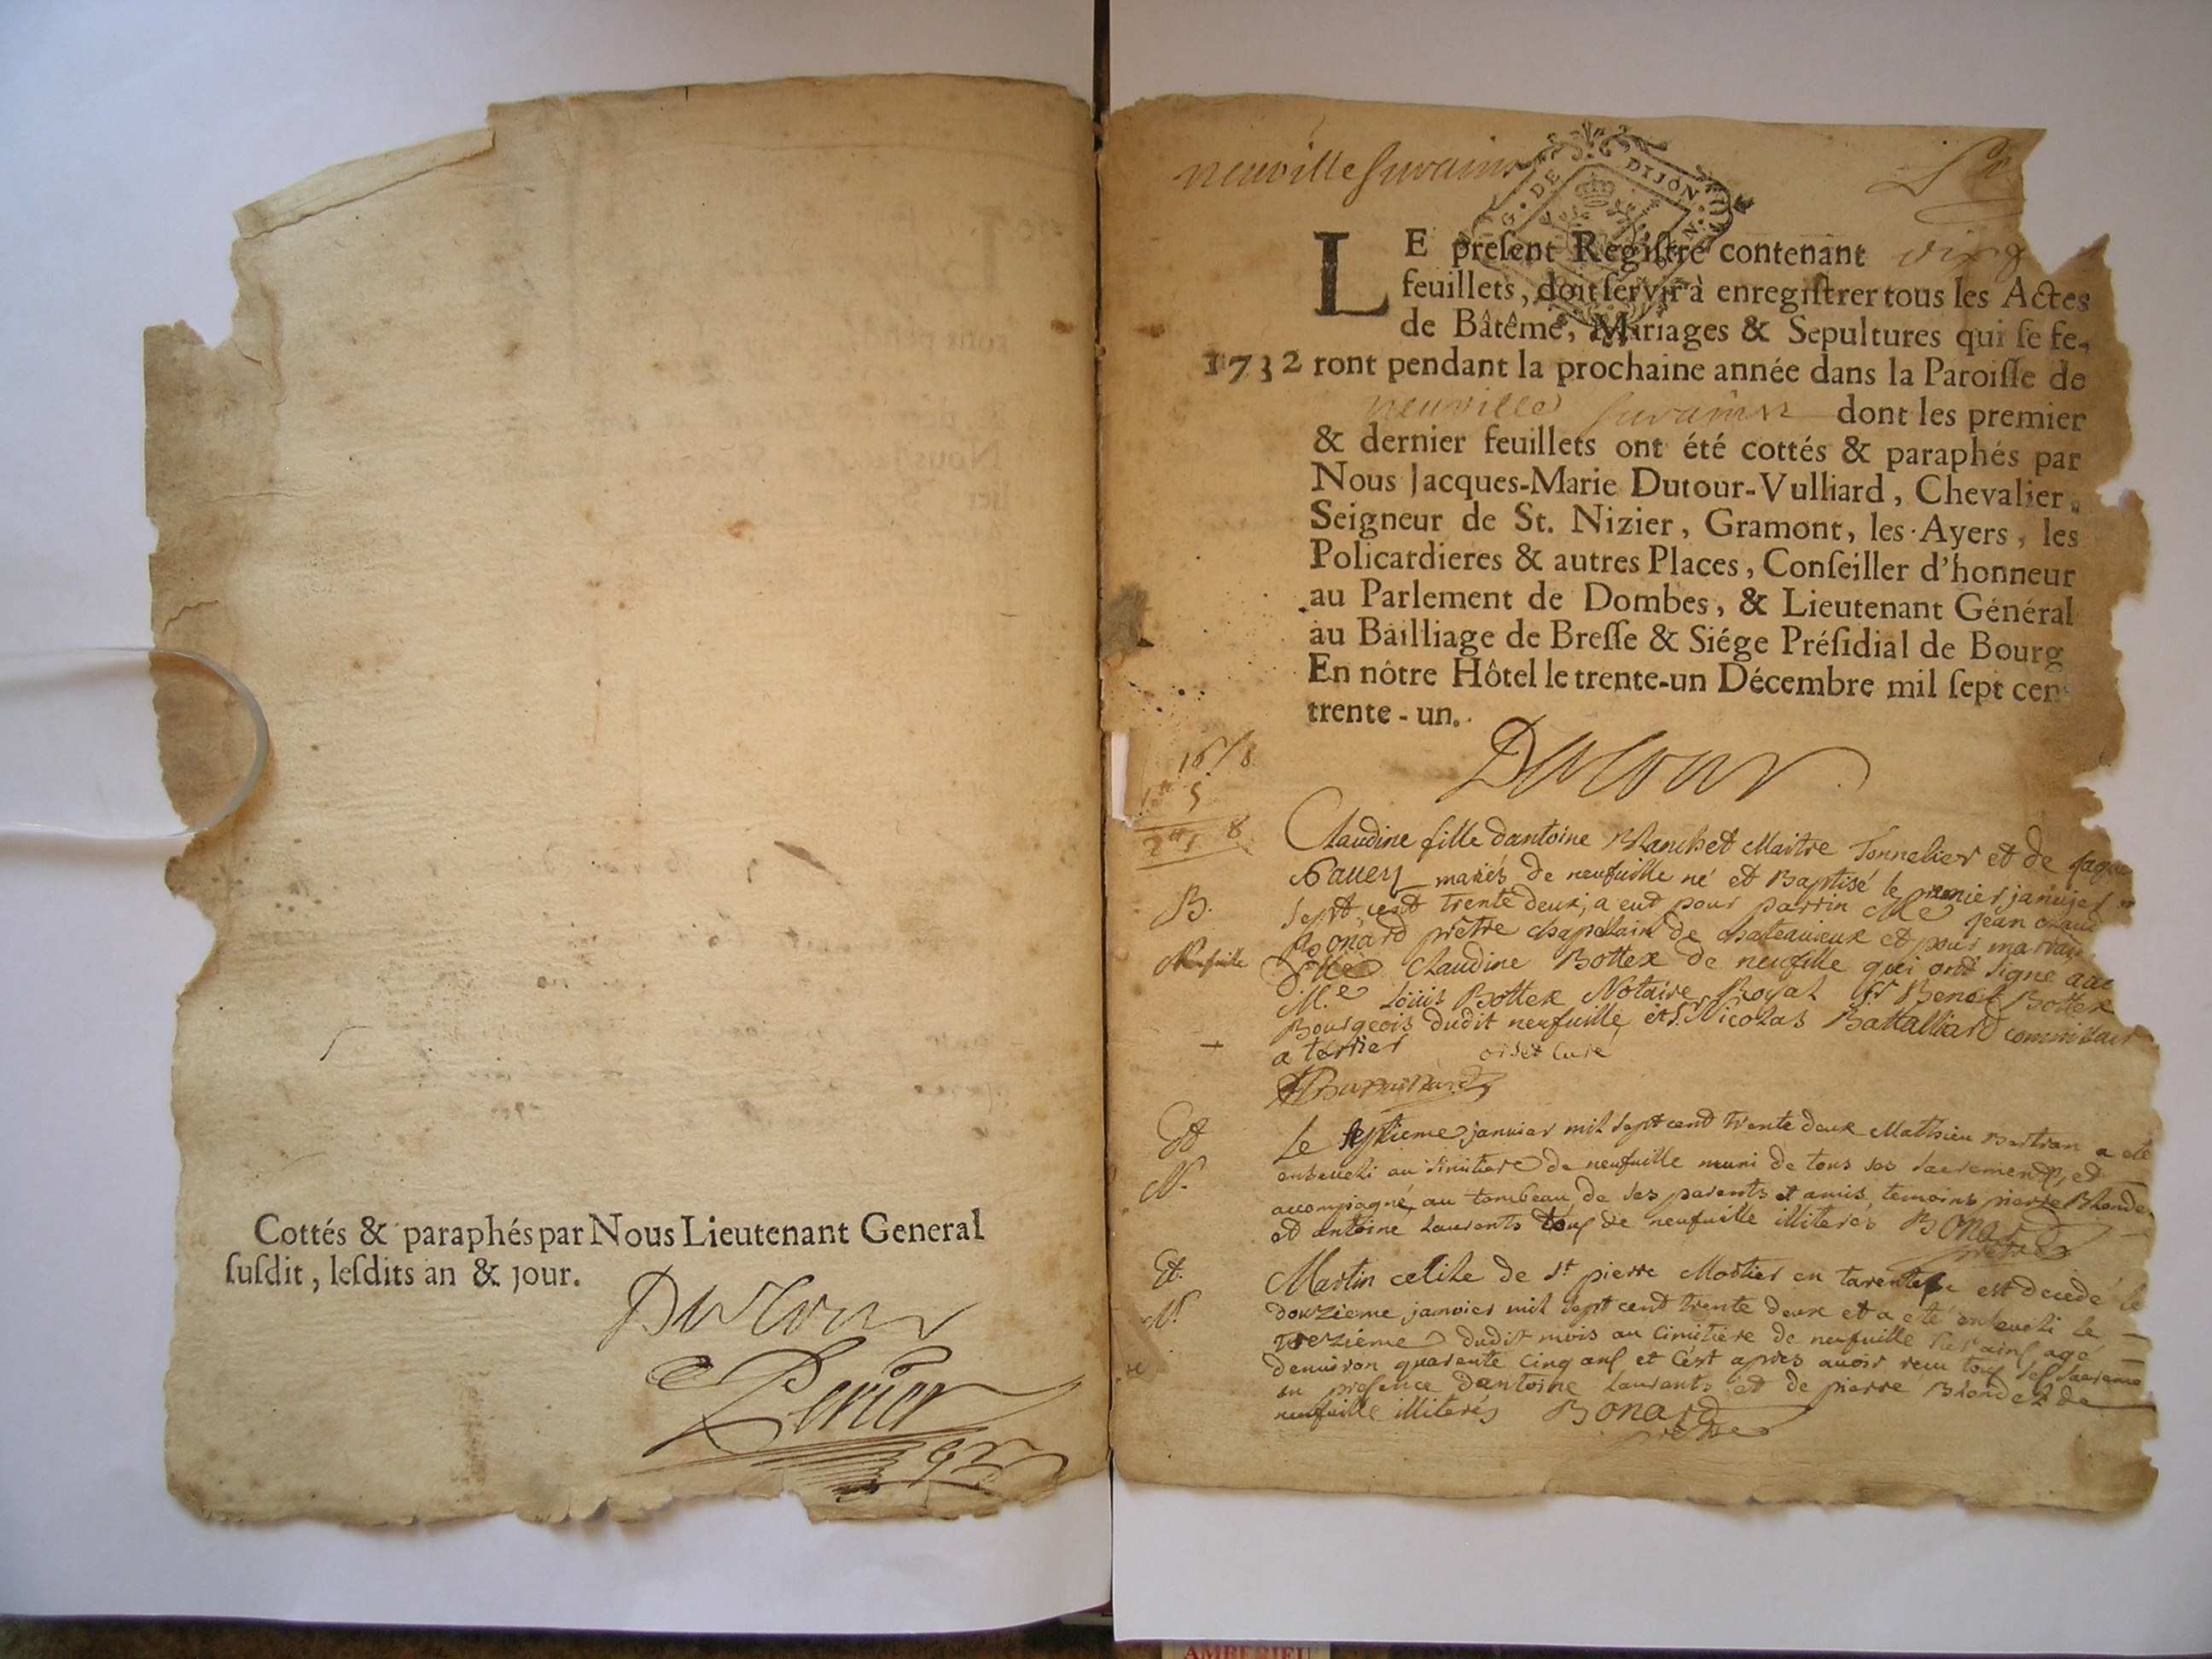 Cottés & paraphés par Nous Lieutenant General
ſuſdit, leſdits an & jour.
Dutour
Perier
neuville ſur ains
G. DE DIJON
LE preſent Regiſtre contenant ving
feuillets, doit ſervir à enregiſtrer tous les Actes
de Bâtême, Mariages & Sepultures qui ſe fe-
1732 ront pendant la prochaine année dans la Paroiſſe de
neuville ſur ains dont les premier
& dernier feuillets ont été cottés & paraphés par
Nous Jacques-Marie Dutour-Vulliard, Chevalier,
Seigneur de St. Nizier, Gramont, les Ayers, les
Policardieres & autres Places, Conſeiller d'honneur
au Parlement de Dombes, & Lieutenant Général
au Bailliage de Breſſe & Siége Préſidial de Bourg
En nôtre Hôtel le trente-un Décembre mil ſept cen
trente-un.
Dutour
5
8
Claudine fille dantoine Blanchet Maitre Tonnelier et de Jaque
mariés de neufuille né et Baptisé le premier januier
B. Sept cent trente deux, a eut pour parrin Mre Jean
Bonard prêtre chapellain de chateauieux et pour marraine
Neufuille Dlle Claudine Bottex de neufuille qui ont signe auec
M.e Loüis Bottex Notaire Royal Sr Benoit Bottex
Bourgeois dudit neufuille et Sr Nicolas Battalliard commissair
+ a terrier orset curé
Et Le septieme januier mil sept cent trente deux Mathieu Bertran a eté
N. enseueli au simitiere de neufuille muni de tous ses sacrements, et
accompagné au tombeau de ses parents et amis temoins pierre Blondel
et antoine Laurents tous de neufuille illiterés Bonard
prêtre
Et. Martin celite de st pierre Mostier en tarentese est decedé le
N. douzieme januier mil sept cent trente deux et a eté enseueli le
treszieme dudit mois au cimitiere de neufuille sur ains agé
denuiron quarente cinq ans et c'est apres auoir reçu tous ses sacreme
en presence dantoine Laurants et de pierre Blondel de
neufuille illiterés Bonard
prêtre
AMBERIEU